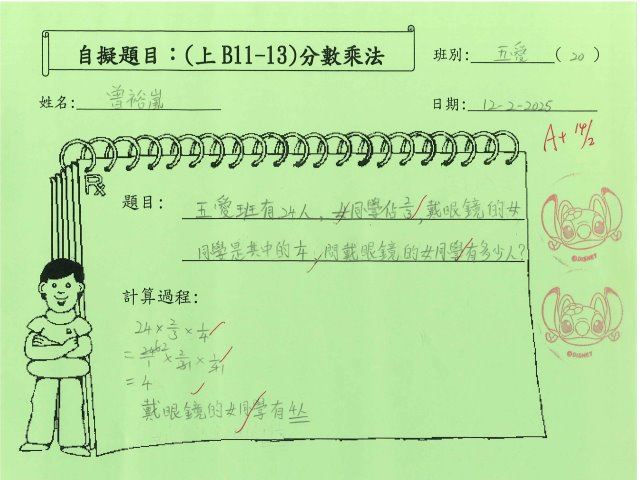 自擬題目：(上 B11-13)分數乘法
班別: 五愛 (20)
姓名: 曾裕嵐
日期: 12-2-2025
A+ 14/2
Rx
題目: 五愛班有24人，女同學佔2/3，戴眼鏡的女
同學是其中的1/4，問戴眼鏡的女同學有多少人?
計算過程:
24 × 2/3 × 1/4
= 
= 4
戴眼鏡的女同學有4人
©DISNEY
©DISNEY